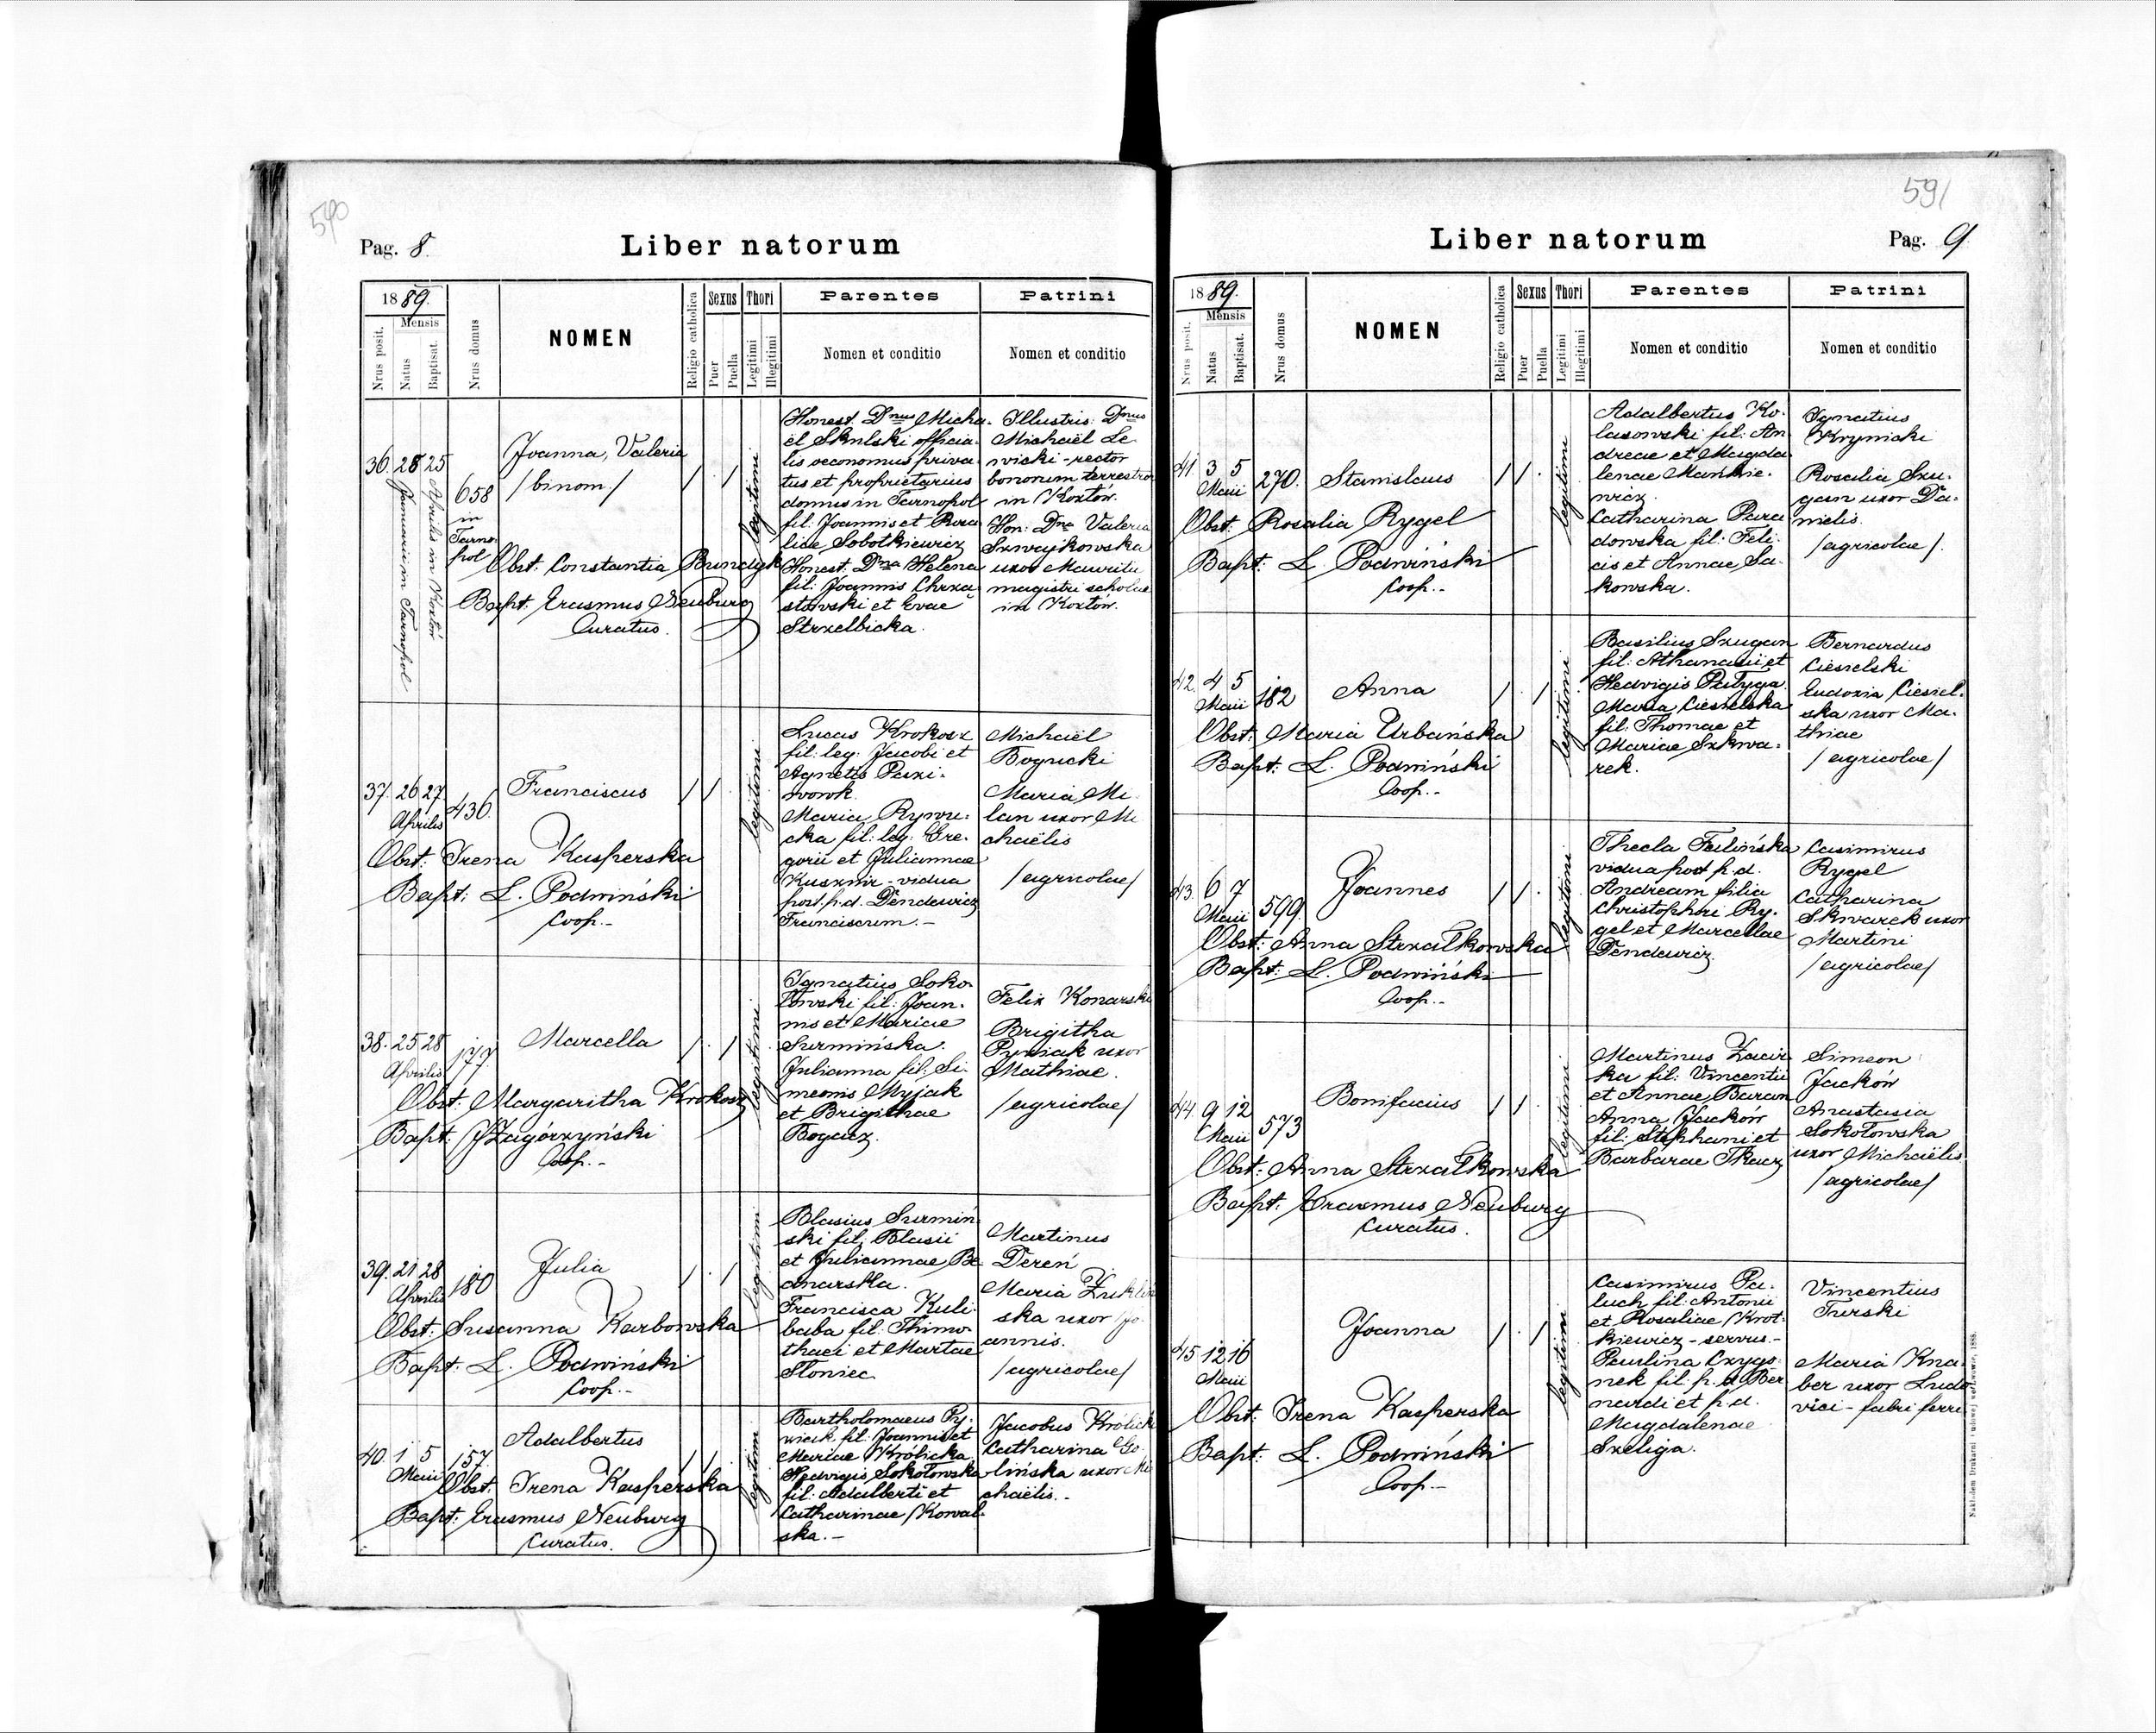 590
Pag. 8.
Liber natorum
1889.
Nrus posit.
Mensis
Natus
Baptisat.
Nrus domus
NOMEN
Religio catholica
Sexus
Puer
Puella
Thori
Legitimi
Illegitimi
Parentes
Nomen et conditio
Patrini
Nomen et conditio
36. 28 25
Januarii in Tarnopol
Aprilis in Kozłów
658
in
Tarno-
pol
Joanna, Valeria
/binom/
Obst: Constantia
Bapt: Erasmus Neuburg
Curatus.
legitimi
Honest. Dnus Micha-
ël Skulski officia-
lis oeconomus priva-
tus et proprietarius
domus in Tarnopol
fil: Joannis et Rosa-
liae Sobotkiewicz
Honest. Dna Helena
fil: Joannis Chrzą-
stowski et Evae
Strzelbicka.
Illustris: Dnus
Michaël Le-
wicki - rector
bonorum terrestr
in Kozłów.
Hon: Dna Valeria
Szwajkowska
uxor Mauritii
magistri scholae
in Kozłów.
37. 26 27
Aprilis
436.
Franciscus
Obst: Irena Kasperska
Bapt: L. Podwiński
Coop.-
legitimi
Lucas Krokosz
fil: leg: Jacobi et
Agnetis Pazi-
wowk.
Maria
cka fil: leg: Gre-
gorii et Juliannae
Kusznir - vidua
post p.d. Dendewicz
Franciscum.-
Michaël
Bogucki
Maria Mi-
lan uxor Mi
chaëlis
/agricolae/
38. 25 28
Aprilis
177.
Marcella
Obst: Margaritha Krokosz
Bapt: J Zagórzyński
Coop.-
legitimi
Ignatius Soko-
łowski fil: Joan-
nis et Mariae
Surmińska.
Julianna fil: Si-
meonis Myjak
et Brigithae
Bogacz.
Felix Konarski
Brigitha
Pyniak uxor
Mathiae.
/agricolae/
39. 21 28
Aprilis
180
Julia
Obst: Susanna Karbowska
Bapt: L. Podwiński
Coop.-
legitimi
Blasius Surmiń-
ski fil: Blasii
et Juliannae Be-
dnarska.
Francisca Kuli-
baba fil: Thimo-
thaei et Martae
Słoniec.
Martinus
Dereń
Maria
ska uxor Jo-
annis.
/agricolae/
40. 1 5
Maii
157.
Adalbertus
Obst: Irena Kasperska
Bapt: Erasmus Neuburg
Curatus.
legitimi
Bartholomaeus Py-
wiak fil: Joannis et
Mariae Królicka
Hedvigis Sokołowska
fil: Adalberti et
Catharinae Kowal-
ska.-
Jacobus Królick
Catharina Go-
lińska uxor Mi
chaëlis.-
591
Liber natorum
Pag. 9
1889.
Nrus posit.
Mensis
Natus
Baptisat.
Nrus domus
NOMEN
Religio catholica
Sexus
Puer
Puella
Thori
Legitimi
Illegitimi
Parentes
Nomen et conditio
Patrini
Nomen et conditio
41. 3 5
Maii
270.
Stanislaus
Obst: Rosalia Rygel
Bapt: L. Podwiński
Coop.-
legitimi
Adalbertus Ko-
lasowski fil: An-
dreae et Magda-
lenae Mankie-
wicz.
Catharina Para-
dowska fil: Feli-
cis et Annae Sa-
kowska.
Ignatius
Krynicki
Rosalia Szu-
gan uxor Da-
nielis.
/agricolae/.
42. 4 5
Maii
182
Anna
Obst: Maria Urbańska
Bapt: L. Podwiński
Coop.-
legitimi
Basilius Szugan
fil: Athanasii et
Hedvigis Patyga.
Maria Ciesielska
fil: Thomae et
Mariae Szkwa-
rek.
Bernardus
Ciesielski
Eudoxia Ciesiel-
ska uxor Ma-
thiae
/agricolae/
43. 6 7
Maii
599.
Joannes
Obst: Anna Strzałkowska
Bapt: L. Podwiński
Coop.-
legitimi
Thecla Felińska
vidua post p.d.
Andream filia
Christophori Ry-
gel et Marcellae
Dendewicz.
Casimirus
Rygel
Catharina
Skwarek uxor
Martini
/agricolae/
44. 9 12
Maii
573
Bonifacius
Obst: Anna Strzałkowska
Bapt: Erasmus Neuburg
Curatus.
legitimi
Martinus
ka fil: Vincentii
et Annae Baran
Anna Jacków
fil: Stephani et
Barbarae Tkacz
Simeon
Jacków
Anastasia
Sokołowska
uxor Michaëlis
/agricolae/
45. 12 16
Maii
Joanna
Obst: Irena Kasperska
Bapt: L. Podwiński
Coop.-
legitimi
Casimirus Pa-
luch fil: Antonii
et Rosaliae Krot-
kiewicz - servus.-
Paulina Czygo-
nek fil: p.d. Ber-
nardi et p.d.
Magdalenae
Szeliga.
Vincentius
Turski
Maria Kna-
ber uxor Ludo-
vici - fabri ferri